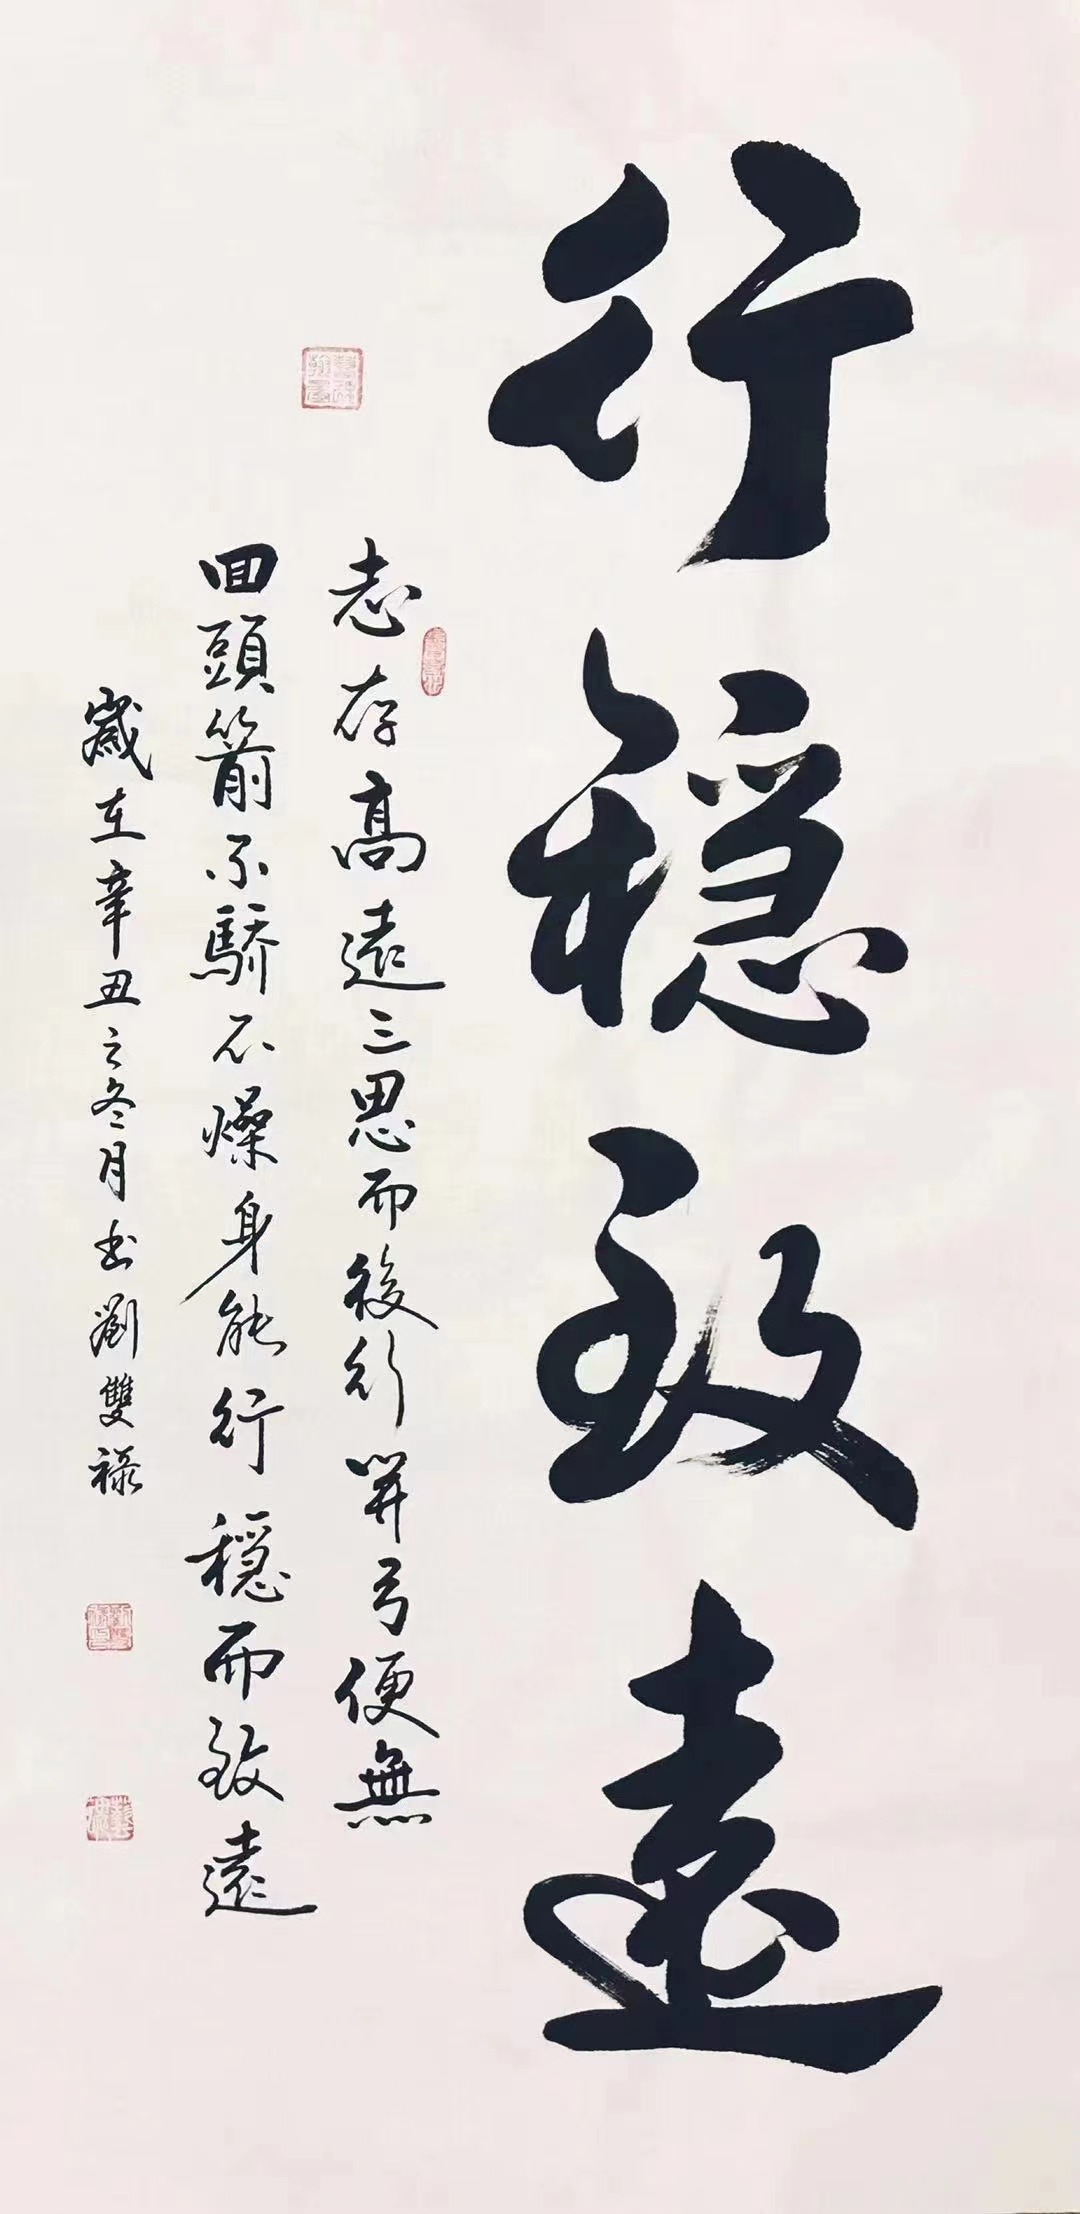 行穩致遠
志存高遠三思而後行開弓便無
回頭箭不驕不燥身能行穩而致遠
歲在辛丑之冬月書劉雙祿